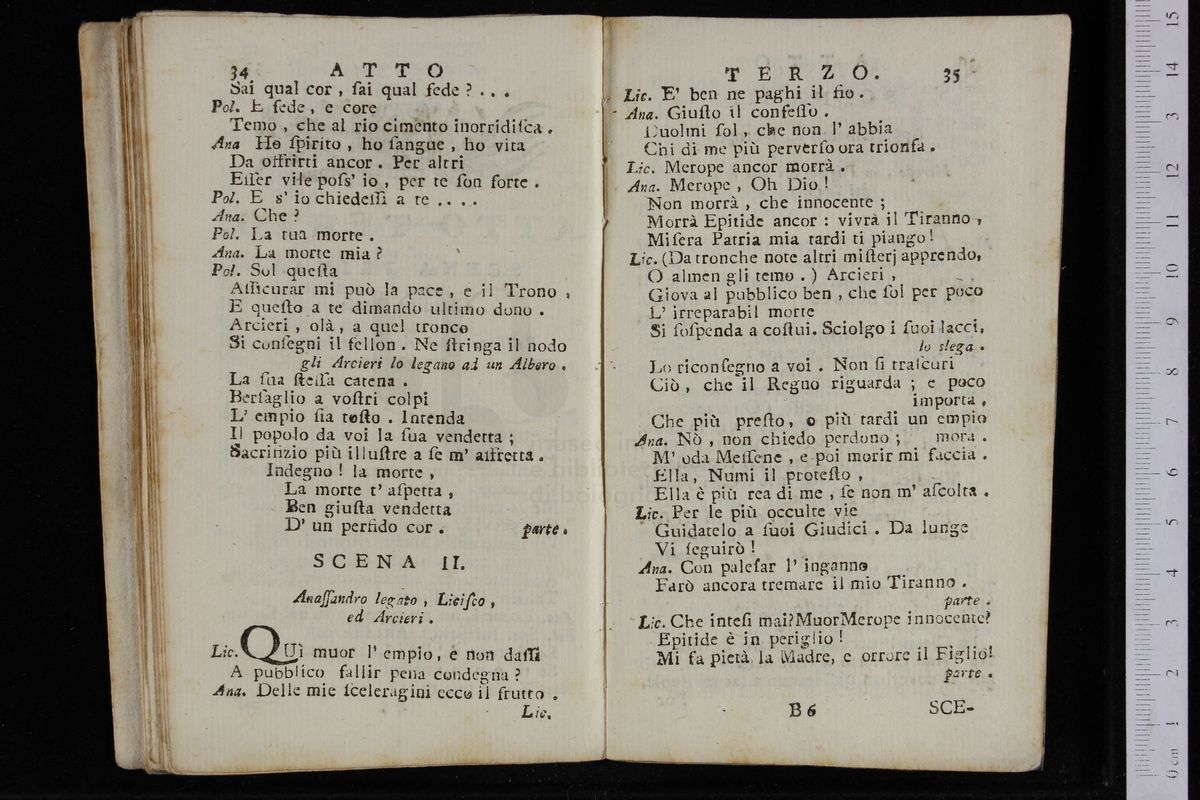 34 ATTO
Sai qual cor , ſai qual fede ? . . .
Pol. E fede , e core
Temo , che al rio cimento inorridiſca .
Ana Ho ſpirito , ho ſangue , ho vita
Da offrirti ancor . Per altri
Eſſer vile poſs' io , per te ſon forte .
Pol. E s' io chiedeſſi a te . . . .
Ana. Che ?
Pol. La tua morte .
Ana. La morte mia ?
Pol. Sol queſta
Aſſicurar mi può la pace , e il Trono ,
E queſto a te dimando ultimo dono .
Arcieri , olà , a quel tronco
Si conſegni il fellon . Ne ſtringa il nodo
gli Arcieri lo legano ad un Albero .
La ſua ſteſſa catena .
Berſaglio a voſtri colpi
L' empio ſia toſto . Intenda
Il popolo da voi la ſua vendetta ;
Sacrifizio più illuſtre a ſe m' affretta .
Indegno ! la morte ,
La morte t' aſpetta ,
Ben giuſta vendetta
D' un perfido cor . parte .
SCENA II.
Anaſſandro legato , Liciſco ,
ed Arcieri .
Lic. QUì muor l' empio, e non daſſi
A pubblico fallir pena condegna ?
Ana. Delle mie ſceleragini ecco il frutto .
Lic.
TERZO. 35
Lic. E' ben ne paghi il fio .
Ana. Giuſto il confeſſo .
Duolmi ſol , che non l' abbia
Chi di me più perverſo ora trionfa .
Lic. Merope ancor morrà .
Ana. Merope , Oh Dio !
Non morrà , che innocente ;
Morrà Epitide ancor : vivrà il Tiranno ,
Miſera Patria mia tardi ti piango !
Lic. (Da tronche note altri miſterj apprendo,
O almen gli temo . ) Arcieri ,
Giova al pubblico ben , che ſol per poco
L' irreparabil morte
Si ſoſpenda a coſtui. Sciolgo i ſuoi lacci,
lo slega .
Lo riconſegno a voi . Non ſi traſcuri
Ciò , che il Regno riguarda ; e poco
importa ,
Che più preſto, o più tardi un empio
Ana. Nò , non chiedo perdono ; mora .
M' oda Meſſene , e poi morir mi faccia .
Ella, Numi il proteſto ,
Ella è più rea di me , ſe non m' aſcolta .
Lic. Per le più occulte vie
Guidatelo a ſuoi Giudici . Da lunge
Vi ſeguirò !
Ana. Con paleſar l' inganno
Farò ancora tremare il mio Tiranno .
parte .
Lic. Che inteſi mai?Muor Merope innocente?
Epitide è in periglio !
Mi fa pietà la Madre, e orrore il Figlio!
parte .
B 6 SCE-